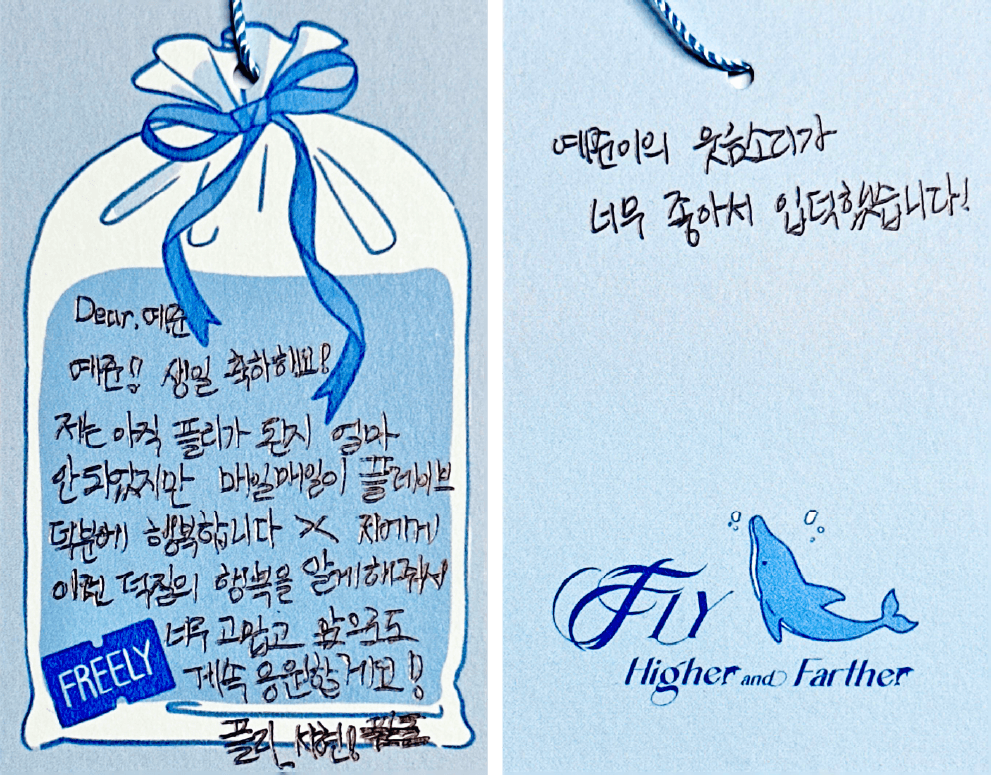 Dear. 예준
예준!! 생일 축하해요!
저는 아직 플리가 된지 얼마
안되었지만 매일매일이 플레이브
덕분에 행복합니다 >< 저에게
이런 덕질의 행복을 알게해줘서
너무 고맙고 앞으로도
계속 응원할게요!!
플리_
FREELY
예준이의 웃음소리가
너무 좋아서 입덕했습니다!
FLY
Higher and Farther